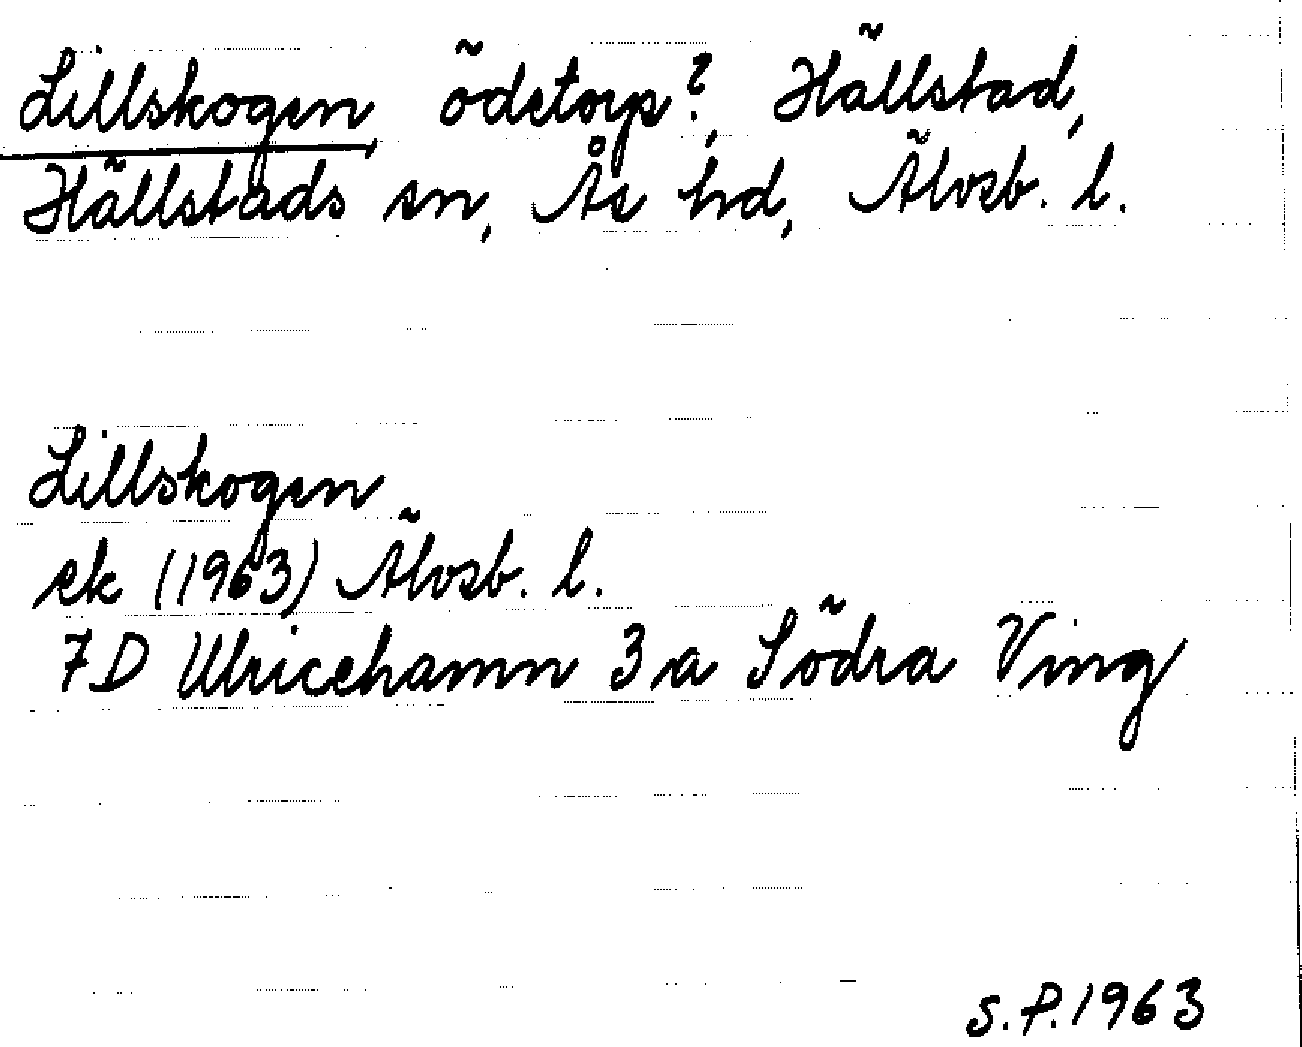 Lillskogen, ödetorp?, Hällstad,
Hällstads sn, Ås hd, Älvsb. l.
Lillskogen
ek (1963) Älvsb. l.
7D Ulricehamn 3a Södra Ving
S.P.1963